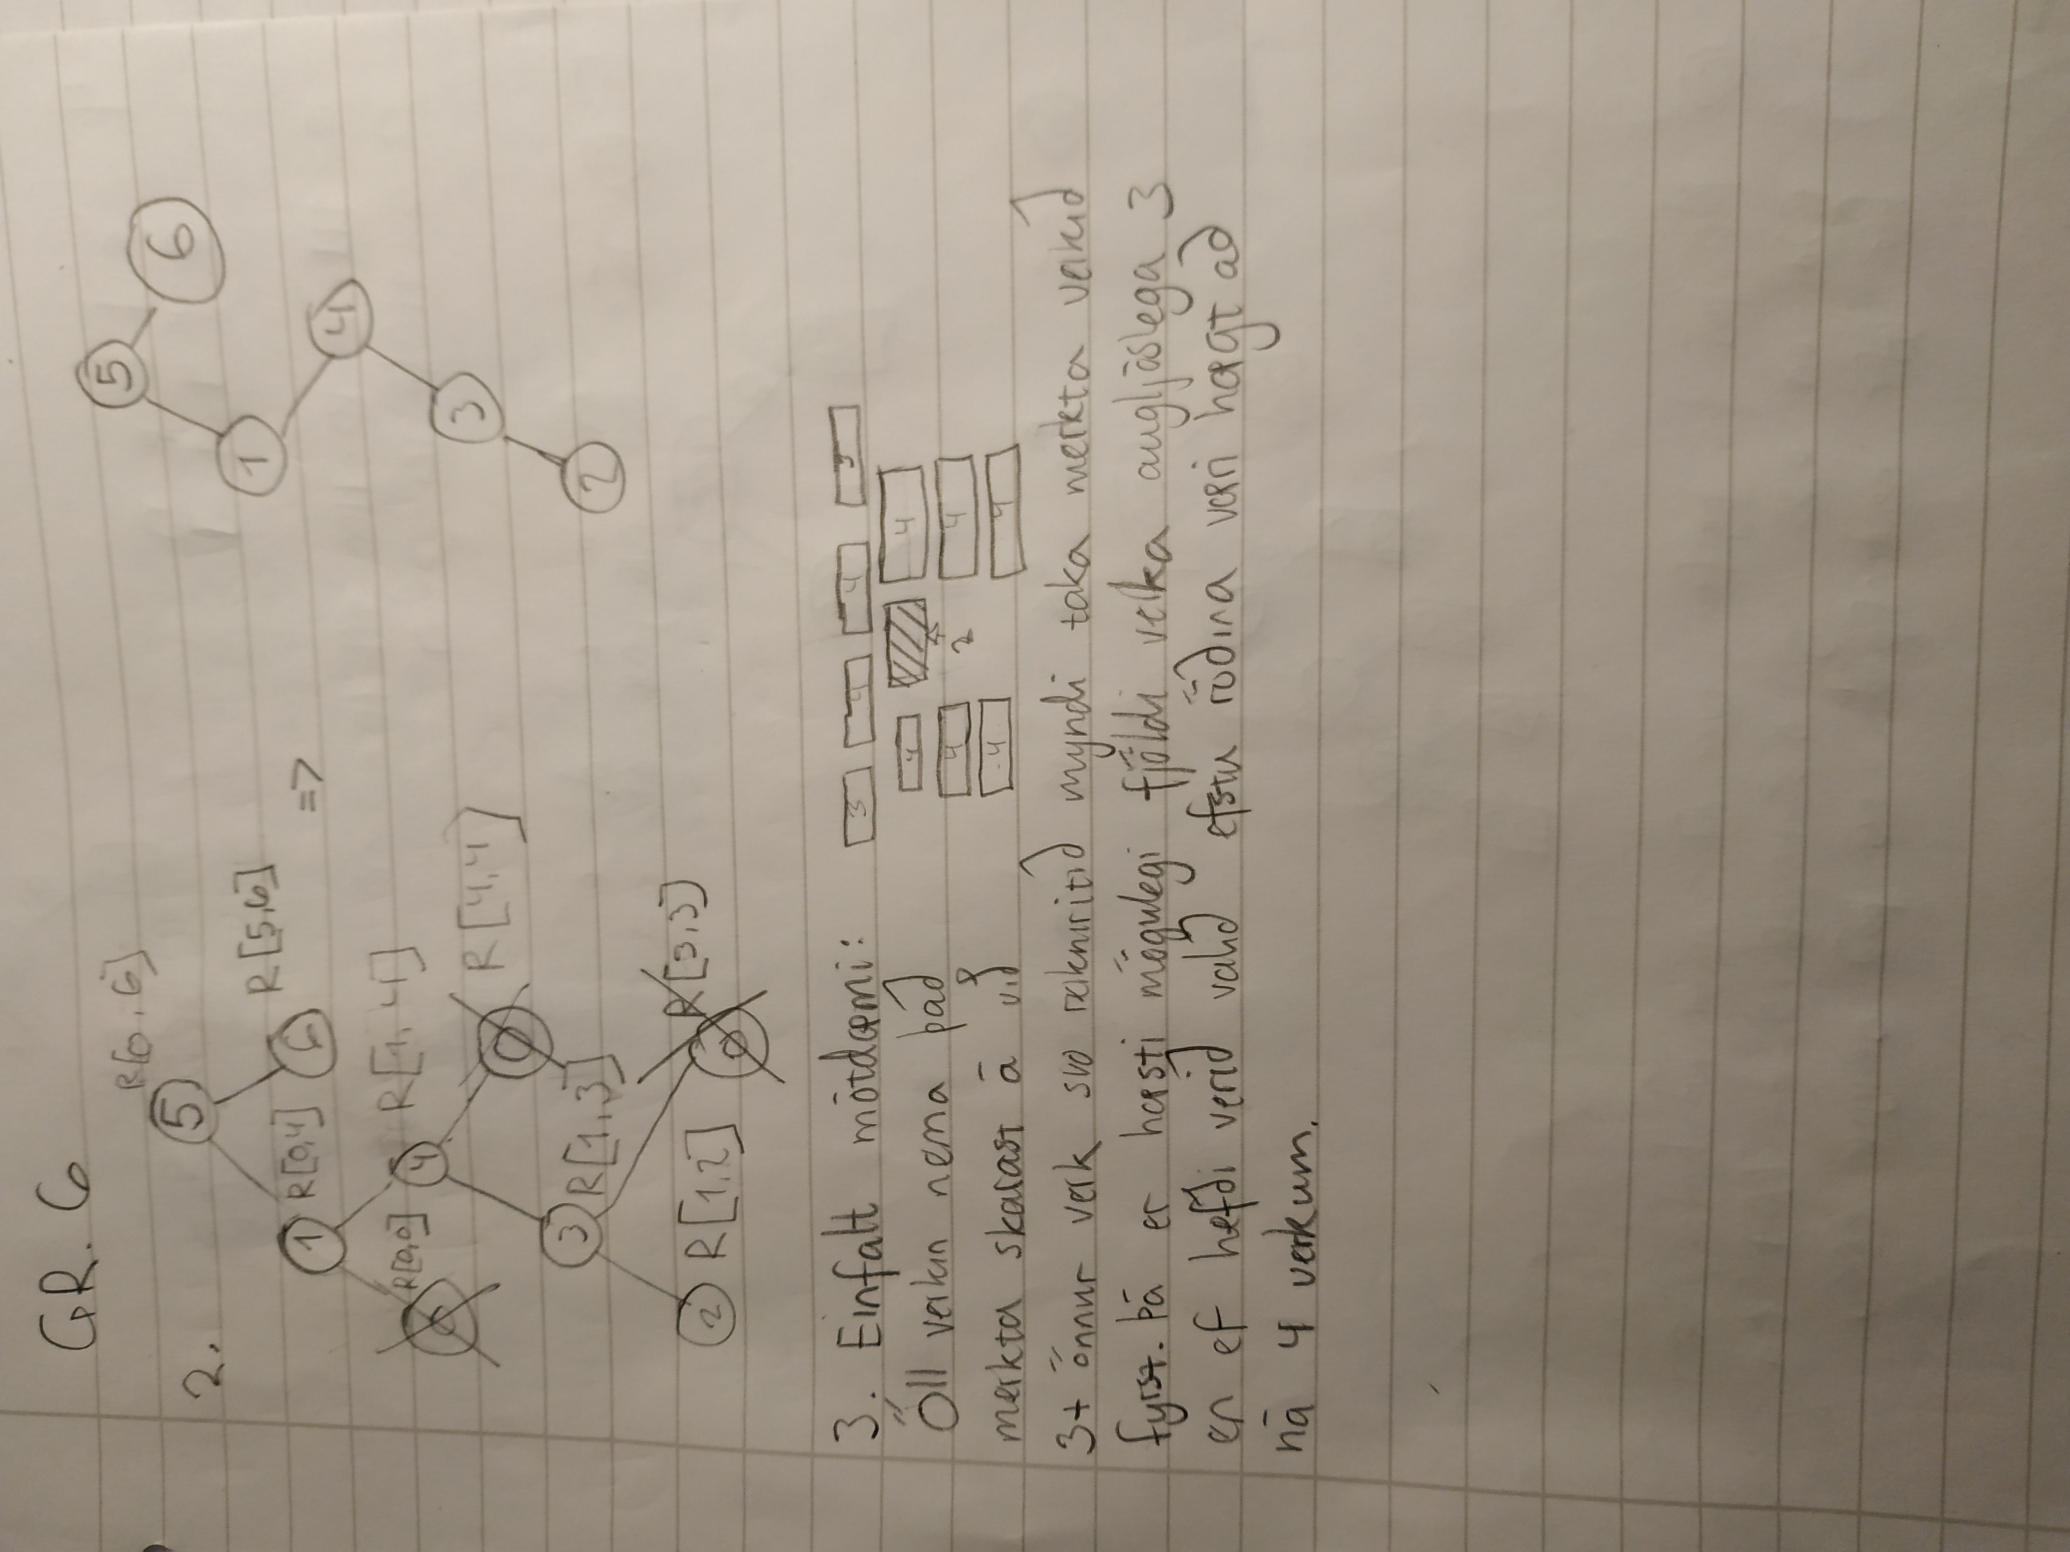 GR. 6
2.
R[0,6]
5
1 R[0,4] 6 R[5,6]
R[0,0] 4 R[1,4]
0 R[4,4]
3 R[1,3]
2 R[1,2] 0 R[3,3]
=>
5
6
1
4
3
2
3. Einfalt mótdæmi: 3 4 4 3
Öll verkin nema það 4 4
4 2 4
merkta skarast á við 4 4
3+ önnur verk svo reikniritið myndi taka merkta verkið
fyrst. Þá er hæsti mögulegi fjöldi verka augljóslega 3
en ef hefði verið valið efstu röðina væri hægt að
ná 4 verkum.